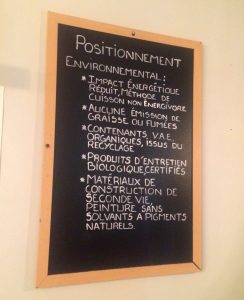 POSITIONNEMENT
ENVIRONNEMENTAL:
* IMPACT ÉNERGÉTIQUE
RÉDUIT, MÉTHODE DE
CUISSON NON ÉNERGIVORE
* AUCUNE ÉMISSION DE
GRAISSE OU FUMÉES
* CONTENANTS V.A.E
ORGANIQUES, ISSUS DU
RECYCLAGE
* PRODUITS D'ENTRETIEN
BIOLOGIQUE, CERTIFIÉS
* MATÉRIAUX DE
CONSTRUCTION DE
SECONDE VIE,
PEINTURE SANS
SOLVANTS A PIGMENTS
NATURELS.